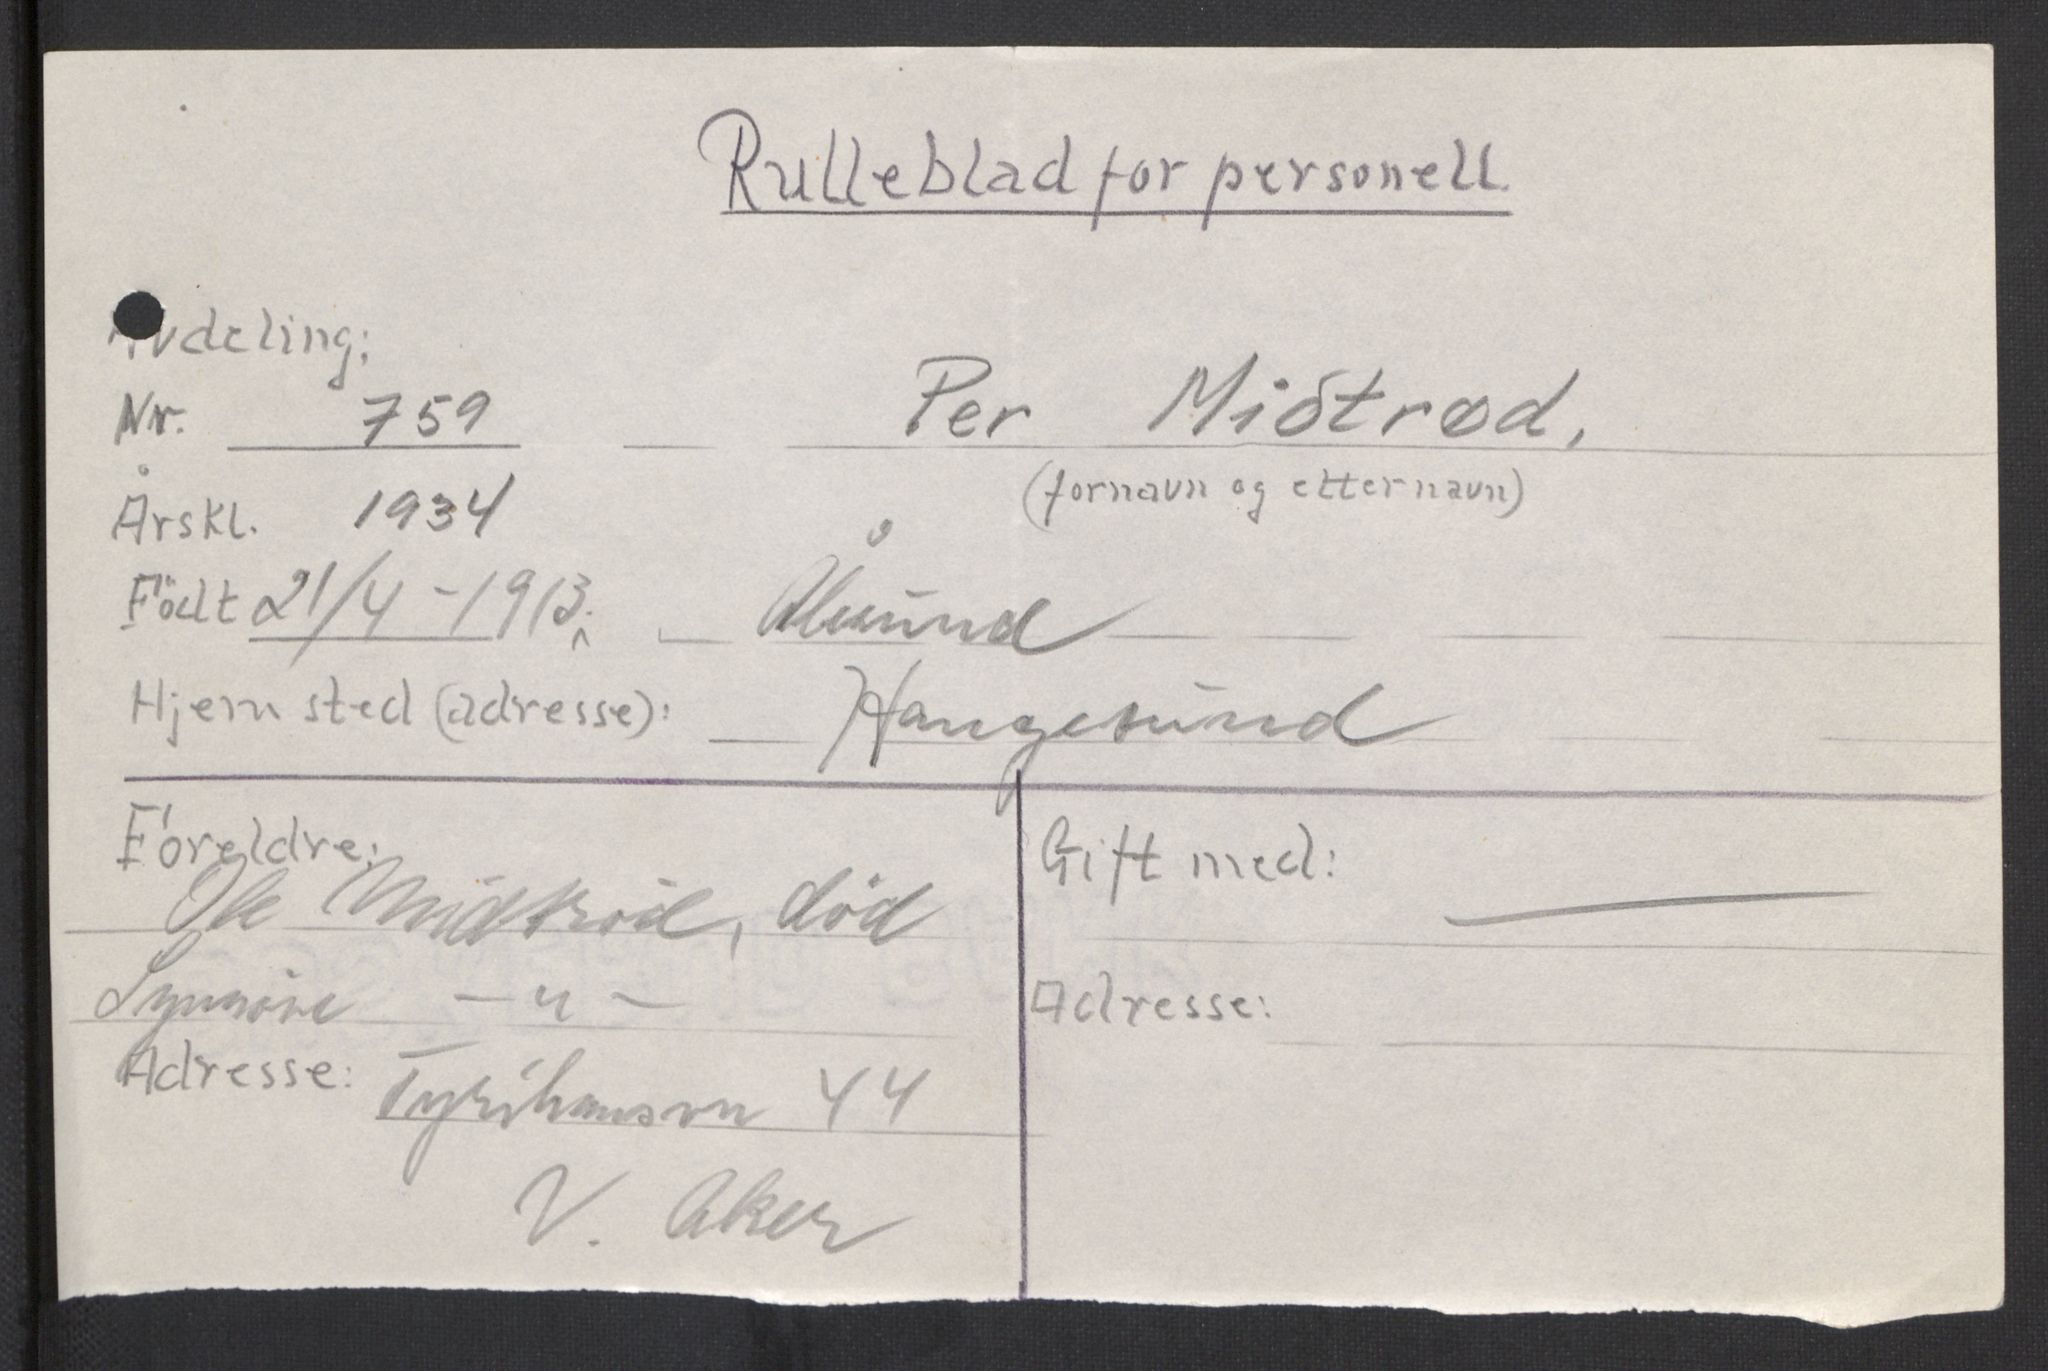 Rulleblad for personell.
Avdeling:
Nr. 759 Per Midtrød.
(fornavn og etternavn)
Årskl. 1934
Födt 21/4 - 1913. Ålesund
Hjemsted (adresse): Haugesund
Foreldre:
Ole Midtröd, död
Synnöve — " —
Adresse: Tyrihansvn 44
V. Aker
Gift med: —
Adresse: